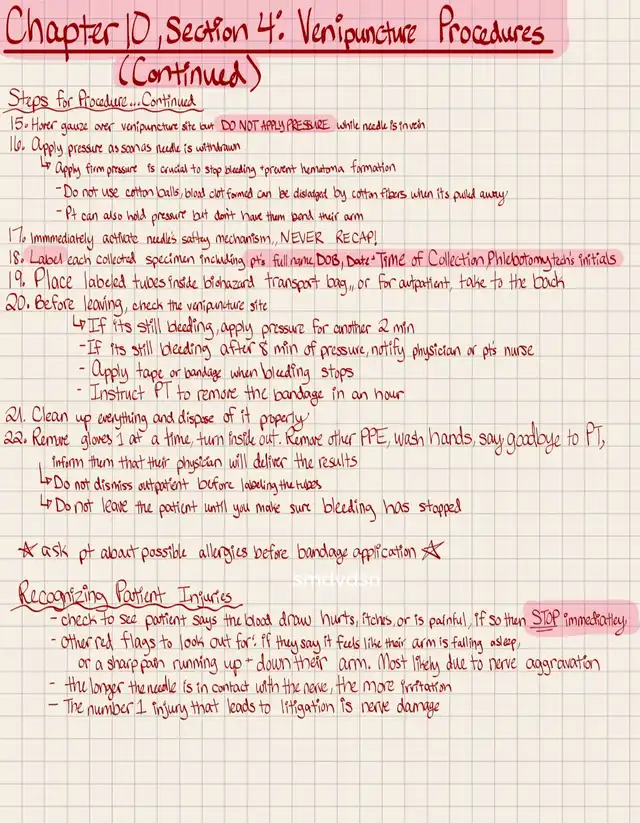 Chapter 10, Section 4: Venipuncture Procedures
(Continued)
Steps for Procedure...Continued
15. Hover gauze over venipuncture site but DO NOT APPLY PRESSURE while needle is in vein
16. Apply pressure as soon as needle is withdrawn
↳ Apply firm pressure is crucial to stop bleeding + prevent hematoma formation
- Do not use cotton balls, blood clot formed can be dislodged by cotton fibers when its pulled away
- Pt can also hold pressure but don't have them bend their arm
17. Immmediately activate needle's saftey mechanism,, NEVER RECAP!
18. Label each collected specimen including pt's full name, DOB, Date + Time of Collection, Phlebotomy tech's initials
19. Place labeled tubes inside biohazard transport bag,, or for outpatient, take to the back
20. Before leaving, check the venipuncture site
↳ If its still bleeding, apply pressure for another 2 min
- If its still bleeding after 8 min of pressure, notify physician or pt's nurse
- Apply tape or bandage when bleeding stops
- Instruct PT to remove the bandage in an hour
21. Clean up everything and dispose of it properly
22. Remove gloves 1 at a time, turn inside out. Remove other PPE, wash hands, say goodbye to PT,
inform them that their physician will deliver the results
↳ Do not dismiss outpatient before labeling the tubes
↳ Do not leave the patient until you make sure bleeding has stopped
☆ ask pt about possible allergies before bandage application ☆
smdvdsn
Recognizing Patient Injuries
- check to see patient says the blood draw hurts, itches, or is painful, if so then STOP immediatley
- other red flags to look out for: if they say it feels like their arm is falling asleep,
or a sharp pain running up + down their arm. Most likely due to nerve aggravation
- the longer the needle is in contact with the nerve, the more irritation
- The number 1 injury that leads to litigation is nerve damage